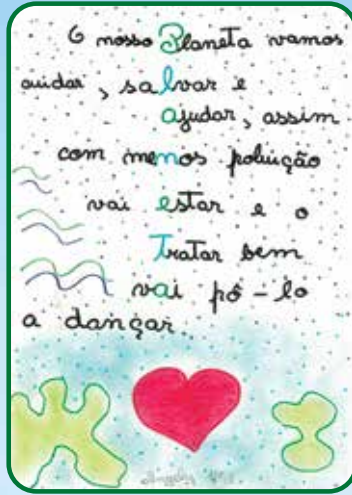 O nosso Planeta vamos
cuidar, salvar e
ajudar, assim
com menos poluição
vai estar e o
Tratar bem
vai pô-lo
a dançar.